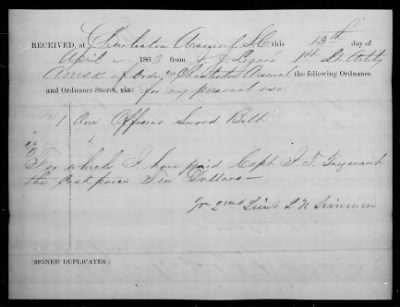 RECEIVED, at Charleston Arsenal S.C this 13th day of
April 1863 from J. J. Legaré 1st Lt Artly
of Ordn Charleston Arsenal the following Ordnance
and Ordnance Stores, viz: for my personal use
1 One Officers Sword Belt
For which I have paid Capt J. T.
the cost price Ten Dollars
Jr 2nd Lieut J. N. Simmons
(SIGNED DUPLICATES.)